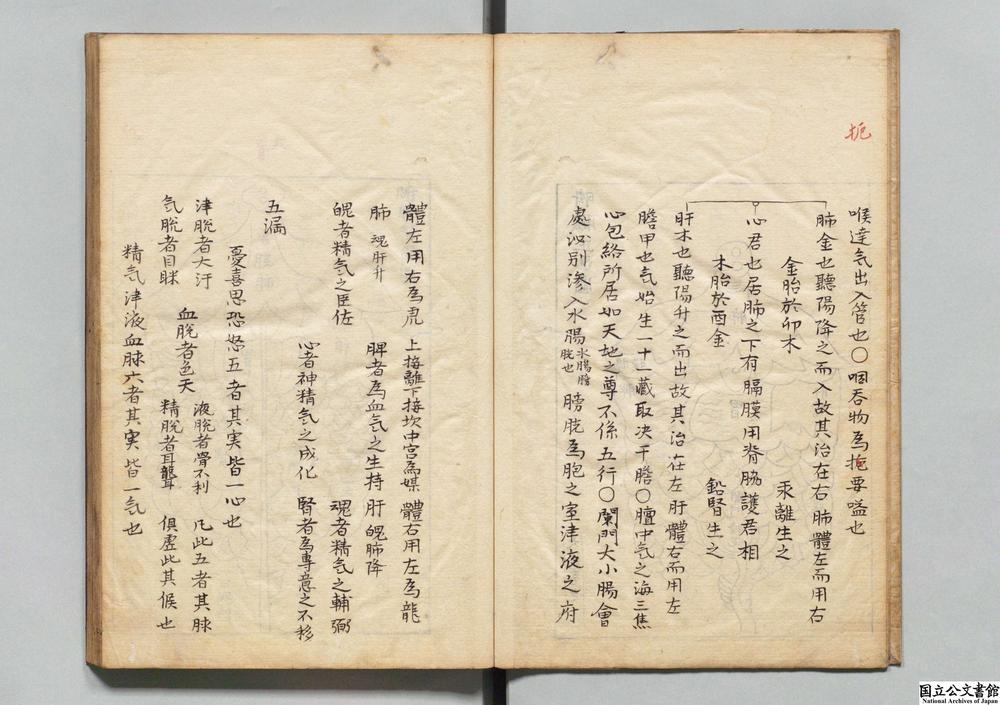 扼
喉達気出入管也〇咽吞物為扼要嗌也
肺金也聽陽降之而入故其治在右 肺體左而用右
金胎於卯木 汞離生之
心君也居肺之下有膈膜用脊脇護君相
木胎於酉金 鉛腎生之
肝木也聽陽升之而出故其治在左 肝體右而用左
膽甲也气始生一十一藏取决于膽〇膻中气之海三焦
心包絡所居如天地之尊不係五行〇闌門大小腸會
處泌別滲入水腸 水腸膽胱也 膀胱為胞之室津液之府
體左用右為虎 上接離下接坎中宮為媒 體右用左為龍
肺 魂肝升 脾者為血气之生持 肝 魄肺降
魄者精气之臣佐 魂者精气之輔弼
心者神精气之成化 腎者為專意之不移
五漏
憂喜思恐怒五者其実皆一心也
津脫者大汗 液脫者骨不利 凡此五者其脉
血脫者色夭
气脫者目眜 精脫者耳聾 俱虛此其候也
精气津液血脉六者其実皆一气也
国立公文書館
National Archives of Japan